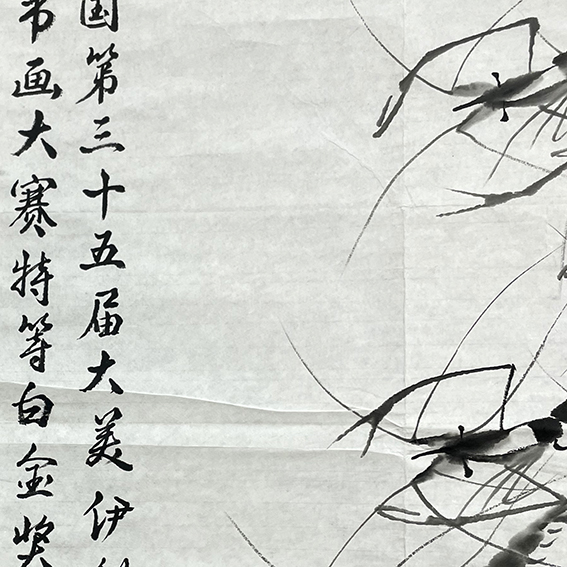 国第三十五届大美伊
书画大赛特等白金奖